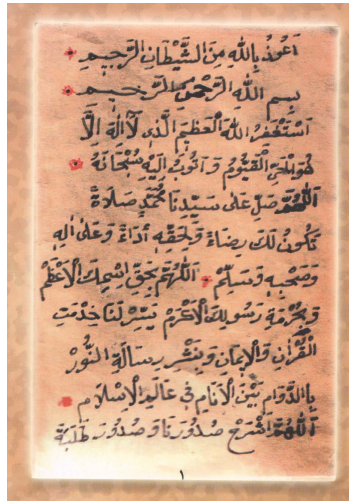 اَعُوذُ بِاللّٰهِ مِنَ الشَّيْطَانِ الرَّجِيمِ
بِسْمِ اللّٰهِ الرَّحْمٰنِ الرَّحِيمِ
اَسْتَغْفِرُ اللّٰهَ الْعَظِيمَ الَّذِى لَا اِلٰهَ اِلَّا
هُوَ الْحَىُّ الْقَيُّومُ وَ اَتُوبُ اِلَيْهِ سُبْحَانَهُ
اَللّٰهُمَّ صَلِّ عَلٰى سَيِّدِنَا مُحَمَّدٍ صَلَاةً
تَكُونُ لَكَ رِضَاءً وَ لِحَقِّهِ اَدَاءً وَ عَلٰى اٰلِهِ
وَ صَحْبِهِ وَ سَلِّمْ اَللّٰهُمَّ بِحَقِّ اِسْمِكَ الْاَعْظَمِ
وَ بِحُرْمَةِ رَسُولِكَ الْاَكْرَمِ يَسِّرْ لَنَا خِدْمَتَ
الْقُرْاٰنِ وَ الْاِيمَانِ وَ بِنَشْرِ رِسَالَةِ النُّورْ
بِالدَّوَامِ بَيْنَ الْاَنَامِ فِى عَالَمِ الْاِسْلَامِ
اَللّٰهُمَّ اشْرَحْ صُدُورَنَا وَ صُدُورَ طَلَبَةِ
١